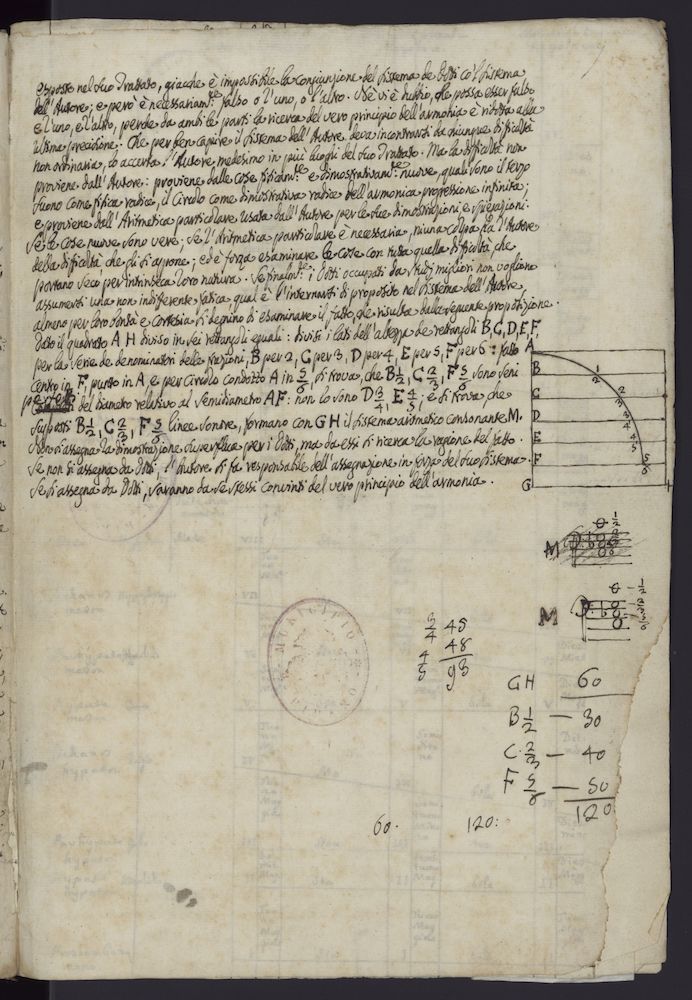 esposto nel suo Trattato, giacche è impossibile la congiunzione del sistema de Dotti co'l sistema
dell'Autore; e però è necessariam.te falso o l'uno, o l'altro. Nè v'è dubbio, che possa esser falso
e l'uno, e l'altro, perche da ambi le parti la ricerca del vero principio dell'armonia è ridotta alla
ultima precisione. Che per ben capire il sistema dell'Autore deva incontrarsi da chiunque difficoltà
non ordinaria, lo accorda l'Autore medesimo in più luoghi del suo Trattato. Ma la difficoltà non
proviene dall'Autore: proviene dalle cose fisicam.te e dimostrativam.te nuove, quali sono il terzo
suono come fisica radice, il Circolo come dimostrativa radice dell'armonica progressione infinita;
e proviene dall'Aritmetica particolare usata dall'Autore per le sue dimostrazioni, e spiegazioni.
Se le cose nuove sono vere; se l'Aritmetica particolare è necessaria, niuna colpa ha l'Autore
della difficoltà, che gli si appone; ed è forza esaminare le cose con tutta quella difficoltà, che
portano seco per intrinseca loro natura. Se finalm.te i Dotti occupati da studj migliori non vogliono
assumersi una non indifferente fatica, qual è l'internarsi di proposito nel sistema dell'Autore,
almeno per loro bontà e cortesia si degnino di esaminare il fatto, che risulta dalla seguente proposizione.
Dato il quadrato A H diviso in sei rettangoli eguali: divisi i lati dell'altezza de rettangoli B, C, D, E, F,
per la serie de denominatori delle frazioni, B per 2, C per 3, D per 4, E per 5, F per 6: fatto
centro in F, punto in A, e per circolo condotto A in 5/6, si trova, che B 1/2, C 2/3, F 5/6 sono seni
del diametro relativo al semidiametro AF: non lo sono D 3/4, E 4/5; e si trova, che
supposti B 1/2, C 2/3, F 5/6 linee sonore, formano con G H il sistema aritmetico consonante M.
Non si assegna la dimostrazione superflua per i Dotti, ma da essi si ricerca la ragione del fatto.
Se non si assegna da Dotti, l'Autore si fa responsabile dell'assegnazione in forza del suo sistema.
Se si assegna da Dotti, saranno da se stessi convinti del vero principio dell'armonia.
A
B 1/2
C 2/3
D 3/4
E 4/5
F 5/6
G
M 1/2
M 1/2
3/4 45
4/5 48
93
GH 60
B 1/2 — 30
C 2/3 — 40
F 5/6 — 50
120
60. 120:
MUNICIPIO